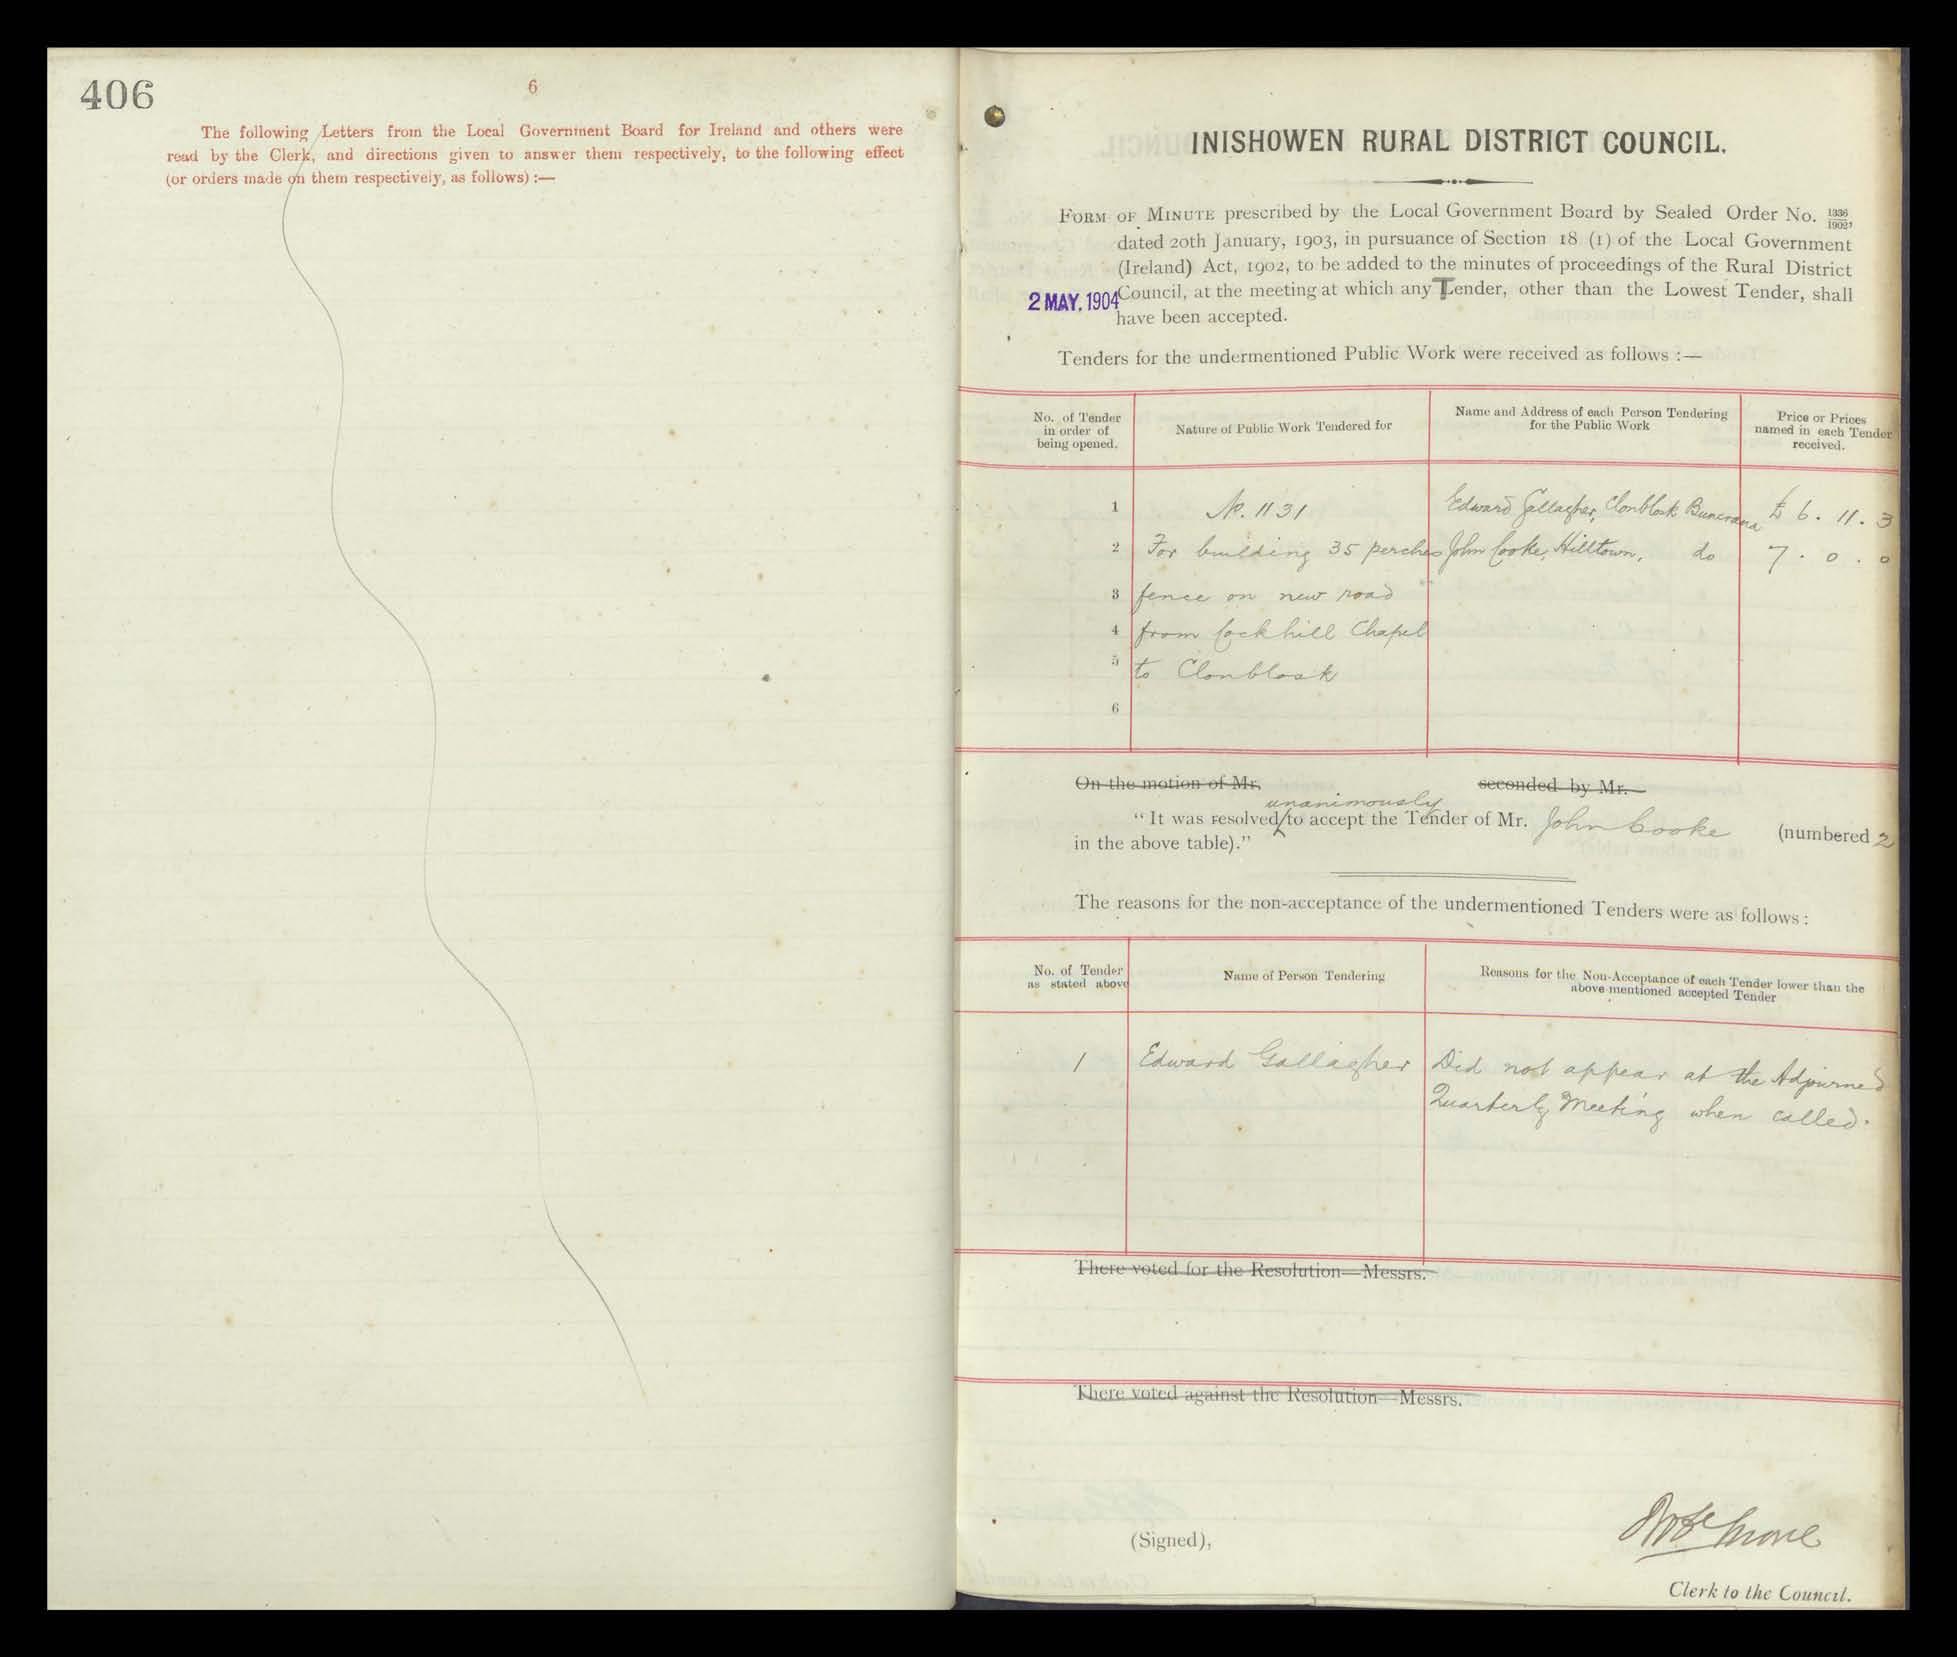 406
6
The following Letters from the Local Government Board for Ireland and others were
read by the Clerk, and directions given to answer them respectively, to the following effect
(or orders made on them respectively, as follows) :—
INISHOWEN RURAL DISTRICT COUNCIL.
FORM OF MINUTE prescribed by the Local Government Board by Sealed Order No. 1336/1902,
dated 20th January, 1903, in pursuance of Section 18 (1) of the Local Government
(Ireland) Act, 1902, to be added to the minutes of proceedings of the Rural District
2 MAY. 1904 Council, at the meeting at which any Tender, other than the Lowest Tender, shall
have been accepted.
Tenders for the undermentioned Public Work were received as follows :—
No. of Tender
in order of
being opened.
Nature of Public Work Tendered for
Name and Address of each Person Tendering
for the Public Work
Price or Prices
named in each Tender
received.
1 No. 1131 Edward Gallagher, Clonblosk Buncrana £ 6 . 11 . 3
2 For building 35 perches John Cooke, Hilltown, do 7 . 0 . 0
3 fence on new road
4 from Cockhill Chapel
5 to Clonblosk
6
On the motion of Mr. seconded by Mr.
unanimously
"It was resolved to accept the Tender of Mr. John Cooke (numbered 2
in the above table)."
The reasons for the non-acceptance of the undermentioned Tenders were as follows :
No. of Tender
as stated above
Name of Person Tendering
Reasons for the Non-Acceptance of each Tender lower than the
above mentioned accepted Tender
1 Edward Gallagher Did not appear at the Adjourned
Quarterly Meeting when called.
There voted for the Resolution—Messrs.
There voted against the Resolution—Messrs.
(Signed),
Clerk to the Council.